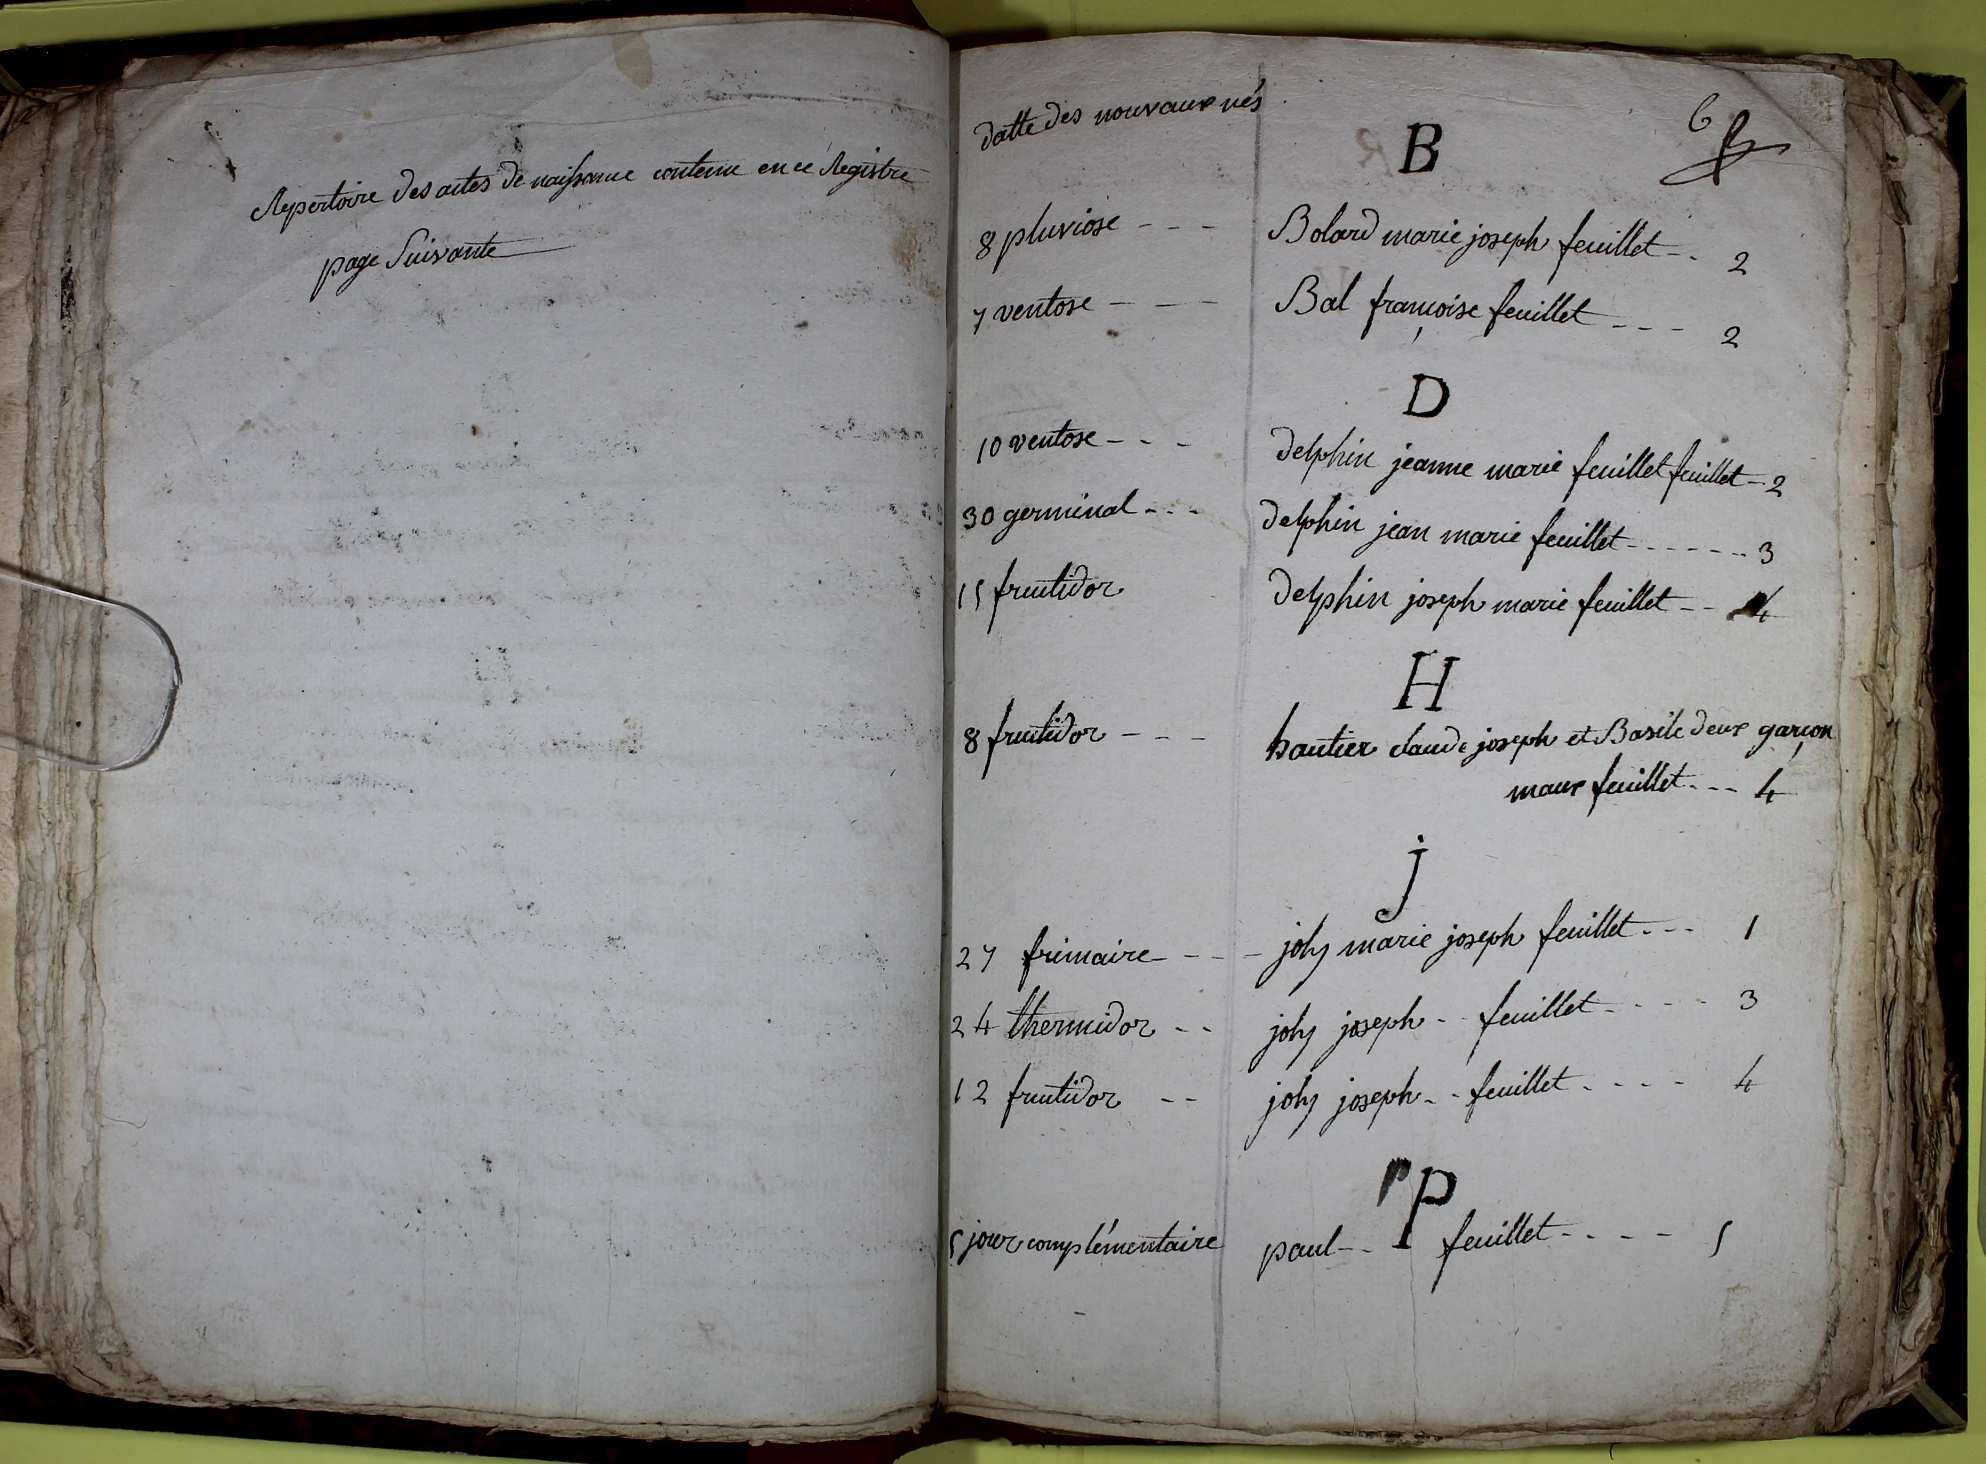 Repertoire des actes de naissance contenu en ce Registre
page Suivante
datte des nouvaux nés
6
B
8 pluviose - - - Bolard marie joseph feuillet - - 2
7 ventose - - - Bal françoise feuillet - - - 2
D
10 ventose - - - delphin jeanne marie feuillet feuillet - 2
30 germinal - - - delphin jean marie feuillet - - - - - - - 3
15 fructidor delphin joseph marie feuillet - - 4
H
8 fructidor - - - hautier claude joseph et Basile deux garçon
maux feuillet - - - 4
j
27 frimaire - - - - joly marie joseph feuillet - - - 1
24 thermidor - - joly joseph - - feuillet - - - - 3
12 fructidor - - joly joseph - - feuillet - - - - 4
P
5 jour complémentaire paul - - feuillet - - - - 5